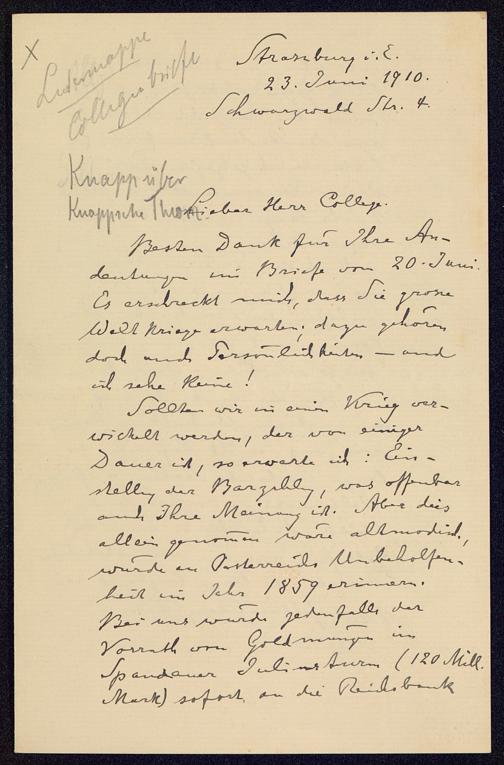 X
Ledermappe
Collegenbriefe
Knapp über
Knappsche Theorie
Straszburg i. E.
23. Juni 1910.
Schwarzwald Str. 4.
Lieber Herr College.
Besten Dank für Ihre An-
deutungen im Briefe vom 20. Juni.
Es erschreckt mich, dass Sie grosse
Welt Kriege erwarten; dazu gehören
doch auch Persönlichkeiten – und
ich sehe keine!
Sollten wir in einen Krieg ver-
wickelt werden, der von einiger
Dauer ist, so erwarte ich: Ein-
stellg der Barzahlg, was offenbar
auch Ihre Meinung ist. Aber dies
allein genommen wäre altmodisch,
würde an Oesterreichs Unbeholfen-
heit im Jahr 1859 erinnern.
Bei uns würde jedenfalls der
Vorrath von Goldmünzen im
Spandauer Juliusturm (120 Mill.
Mark) sofort an die Reichsbank